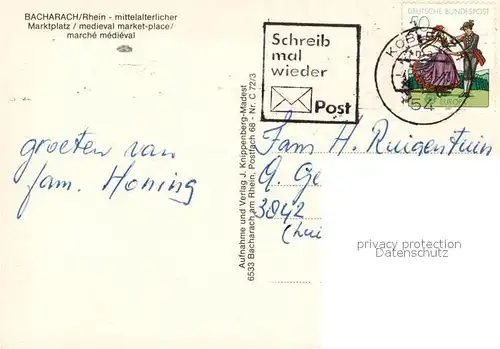 BACHARACH/Rhein - mittelalterlicher
Marktplatz / medieval market-place/
marché médiéval
Schreib
mal
wieder
Post
KOBLEN
54
DEUTSCHE BUNDESPOST
50
EUROPA
groeten van
fam. Honing
Aufnahme und Verlag J. Knippenberg-Madest
6533 Bacharach am Rhein, Postfach 68 - Nr. C 72/3
Fam H. Ruigentuin
3842
privacy protection
Datenschutz